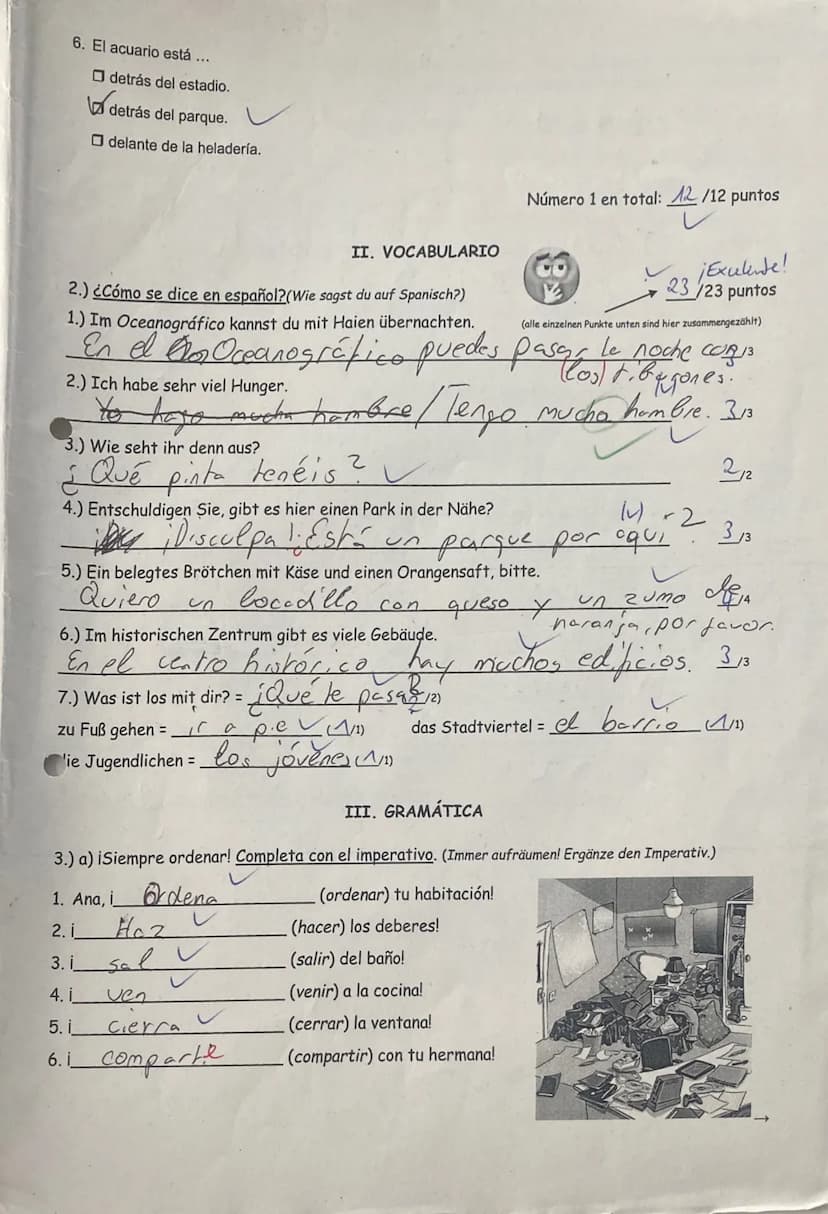 6. El acuario está ...
❒ detrás del estadio.
☑ detrás del parque. ✓
❒ delante de la heladería.
Número 1 en total: 12 /12 puntos
✓
II. VOCABULARIO
¡Exelente!
2.) ¿Cómo se dice en español?(Wie sagst du auf Spanisch?)
✓ 23 /23 puntos
1.) Im Oceanográfico kannst du mit Haien übernachten.
(alle einzelnen Punkte unten sind hier zusammengezählt)
En el Oceanográfico puedes pasar la noche con 3/3
(los) tiburones.
2.) Ich habe sehr viel Hunger.
Yo hago mucha hambre / Tengo mucha hambre. 3/3
3.) Wie seht ihr denn aus?
¿Qué pinta tenéis? ✓ 2/2
4.) Entschuldigen Sie, gibt es hier einen Park in der Nähe?
¡Disculpa! ¿Está un parque por aqui? (✓) 3/3
5.) Ein belegtes Brötchen mit Käse und einen Orangensaft, bitte.
Quiero un bocadillo con queso y un zumo de 4/4
naranja, por favor.
6.) Im historischen Zentrum gibt es viele Gebäude.
En el centro histórico hay muchos edificios. 3/3
7.) Was ist los mit dir? = ¿Qué te pasa? 2/2)
zu Fuß gehen = ir a pie ✓ (1/1) das Stadtviertel = el barrio (1/1)
die Jugendlichen = los jóvenes (1/1)
III. GRAMÁTICA
3.) a) ¡Siempre ordenar! Completa con el imperativo. (Immer aufräumen! Ergänze den Imperativ.)
1. Ana, ¡ Ordena (ordenar) tu habitación!
2. ¡ Haz (hacer) los deberes!
3. ¡ sal (salir) del baño!
4. ¡ ven (venir) a la cocina!
5. ¡ cierra (cerrar) la ventana!
6. ¡ comparte (compartir) con tu hermana!
→